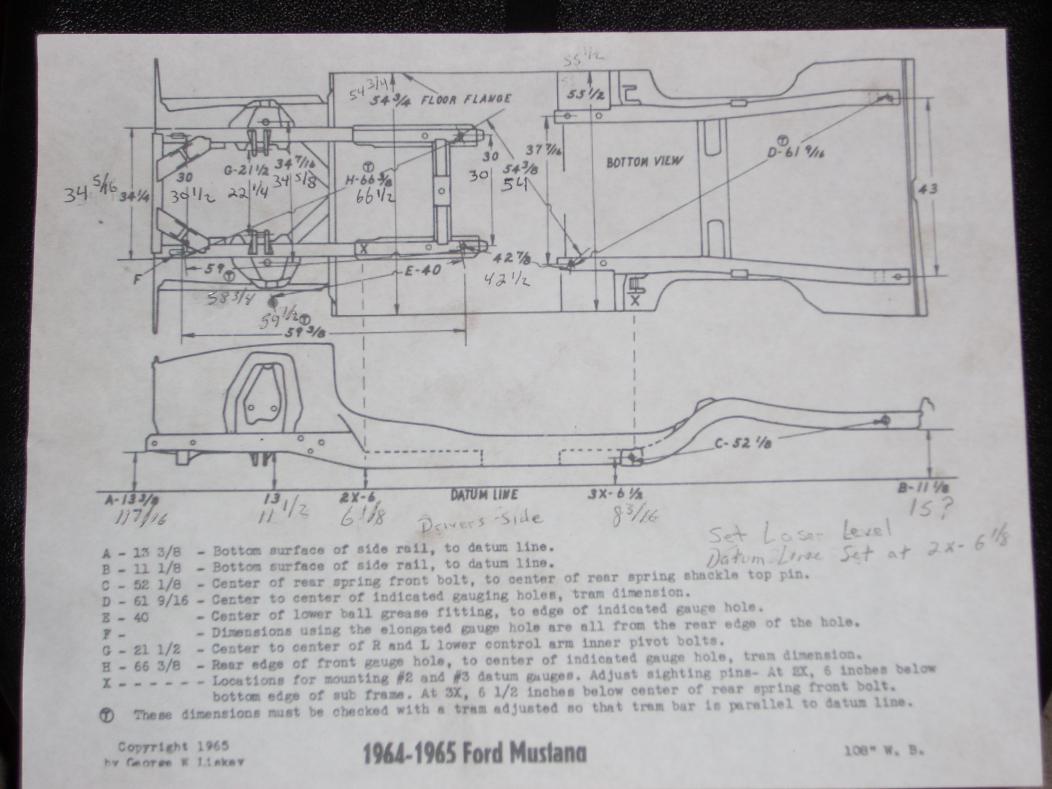 55 1/2
54 3/4
54 3/4 FLOOR FLANGE
55 1/2
34 5/16 34 1/4
30
30 1/2
G-21 1/2
22 1/4
34 7/16
34 5/8
T
H-66 3/8
66 1/2
30
30
54 3/8
54
37 7/16
BOTTOM VIEW
T
D-61 9/16
43
F
X
59 T
58 3/4
E-40
42 7/8
42 1/2
X
59 1/2 T
59 3/8
C-52 1/8
A-13 3/8
13
2X-6
DATUM LINE
3X-6 1/2
B-11 1/8
11 7/16
11 1/2
6 1/8
Drivers Side
8 3/16
15?
Set Laser Level
Datum Line Set at 2x-6 1/8
A - 13 3/8 - Bottom surface of side rail, to datum line.
B - 11 1/8 - Bottom surface of side rail, to datum line.
C - 52 1/8 - Center of rear spring front bolt, to center of rear spring shackle top pin.
D - 61 9/16 - Center to center of indicated gauging holes, tram dimension.
E - 40 - Center of lower ball grease fitting, to edge of indicated gauge hole.
F - - Dimensions using the elongated gauge hole are all from the rear edge of the hole.
G - 21 1/2 - Center to center of R and L lower control arm inner pivot bolts.
H - 66 3/8 - Rear edge of front gauge hole, to center of indicated gauge hole, tram dimension.
X - - - - - - Locations for mounting #2 and #3 datum gauges. Adjust sighting pins- At 2X, 6 inches below
bottom edge of sub frame. At 3X, 6 1/2 inches below center of rear spring front bolt.
T These dimensions must be checked with a tram adjusted so that tram bar is parallel to datum line.
Copyright 1965
by George E Liskey
1964-1965 Ford Mustang
108" W. B.